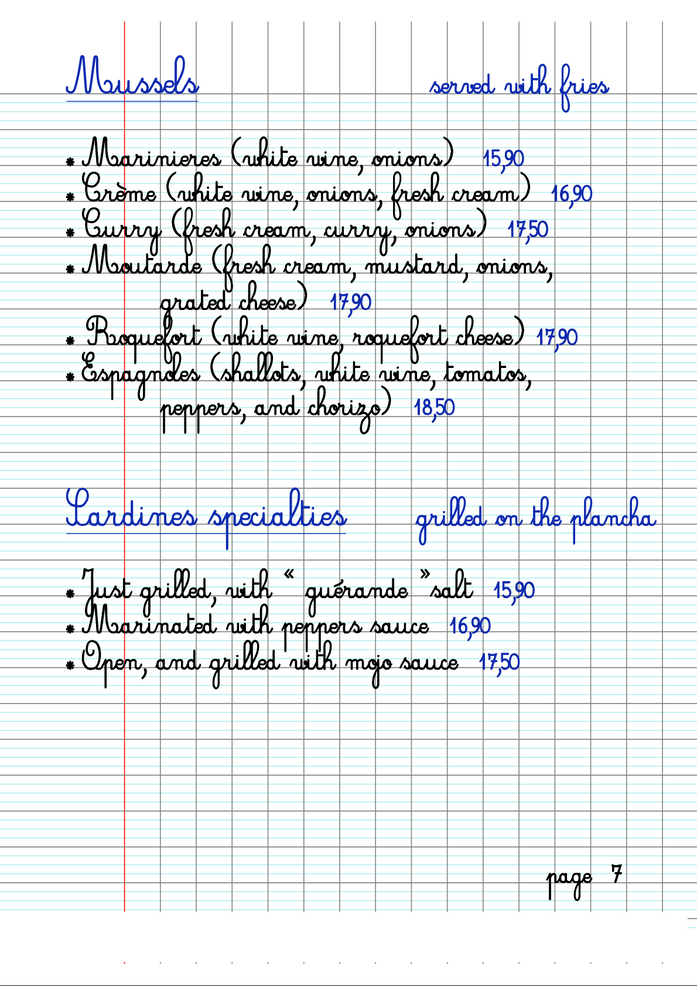 Mussels served with fries
* Marinieres (white wine, onions) 15,90
* Crème (white wine, onions, fresh cream) 16,90
* Curry (fresh cream, curry, onions) 17,50
* Moutarde (fresh cream, mustard, onions,
grated cheese) 17,90
* Roquefort (white wine, roquefort cheese) 17,90
* Espagnoles (shallots, white wine, tomatos,
peppers, and chorizo) 18,50
Sardines specialties grilled on the plancha
* Just grilled, with “ guérande ”salt 15,90
* Marinated with peppers sauce 16,90
* Open, and grilled with mojo sauce 17,50
page 7